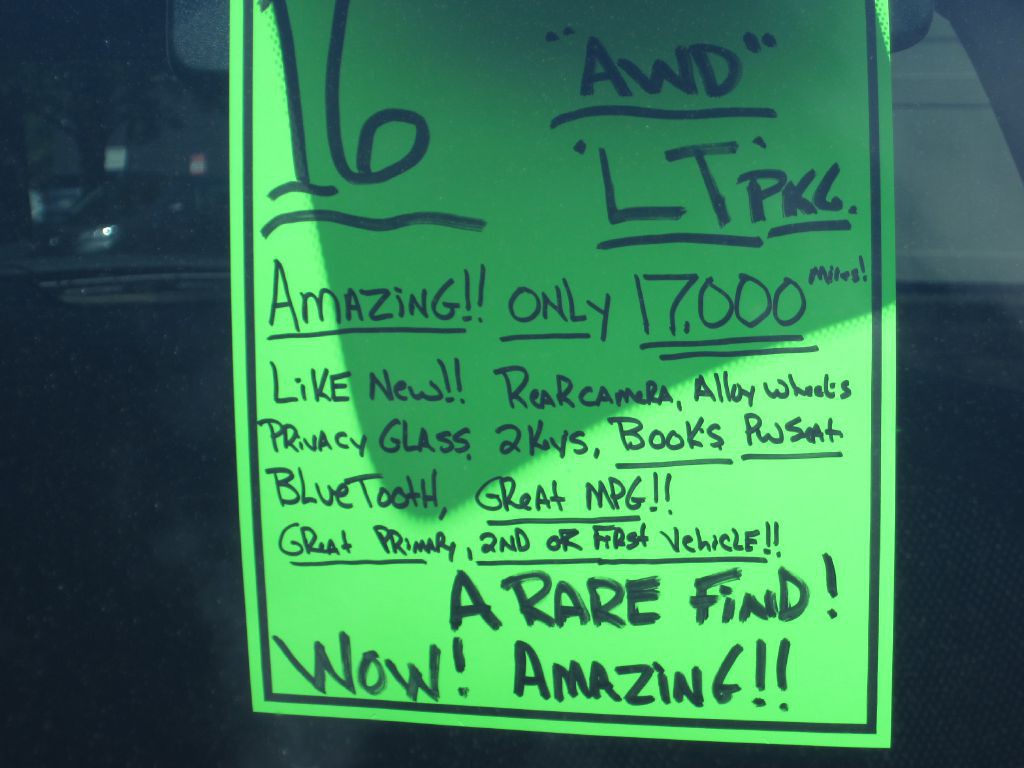 16 "AWD"
"LT" PKG.
AMAZiNG!! ONLY 17,000 Miles!
LiKE New!! REAR CAMERA, Alloy wheels
PRiVACY GLASS, 2 Keys, BOOKS PW Seat
BLueTooTH, GReAt MPG!!
GReat PRimARy, 2ND OR FiRSt VeHicLE!!
A RARE FiND!
WOW! AMAZiNG!!